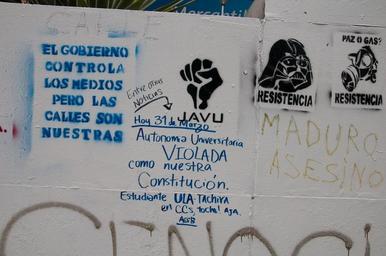 Mercantil
CALLE
EL GOBIERNO
CONTROLA
LOS MEDIOS
PERO LAS
CALLES SON
NUESTRAS
Entre otras
Noticias
JAVU
Hoy 31 de Marzo
Autonomía Universitaria
VIOLADA
como nuestra
Constitución.
Estudiante ULA-Táchira
en CCs, tocha! AJA.
RESISTENCIA
PAZ O GAS?
RESISTENCIA
MADURO
ASESINO